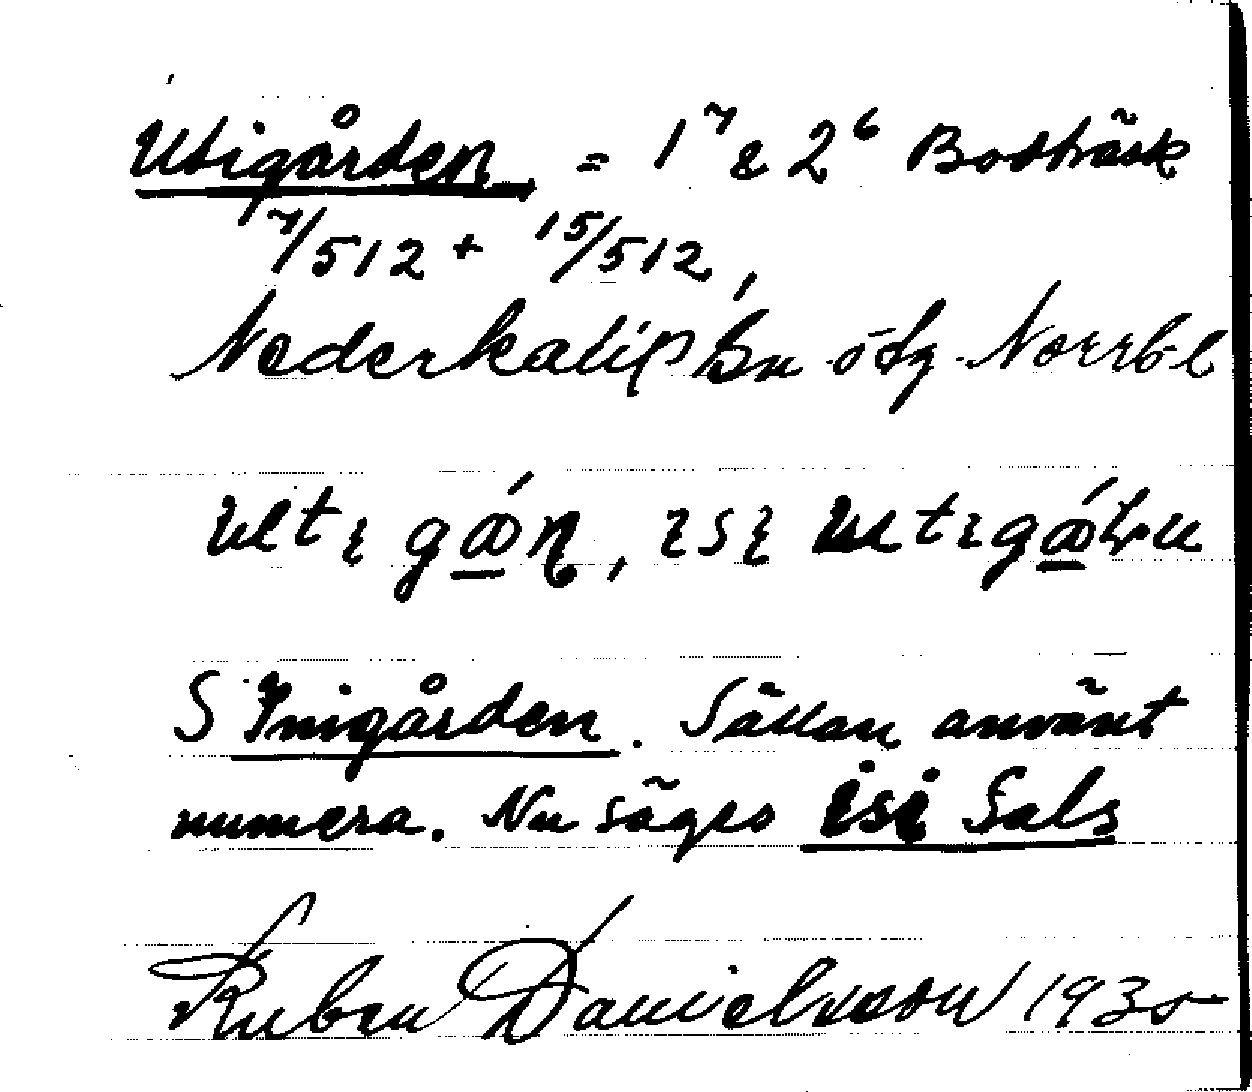 Utigården = 1⁷ & 2⁶ Bodträsk
7/512 + 15/512,
Nederkalix sn ötg Norrb l
S Inigården. Sällan använt
numera. Nu säges isi Sals
Ruben Danielsson 1935